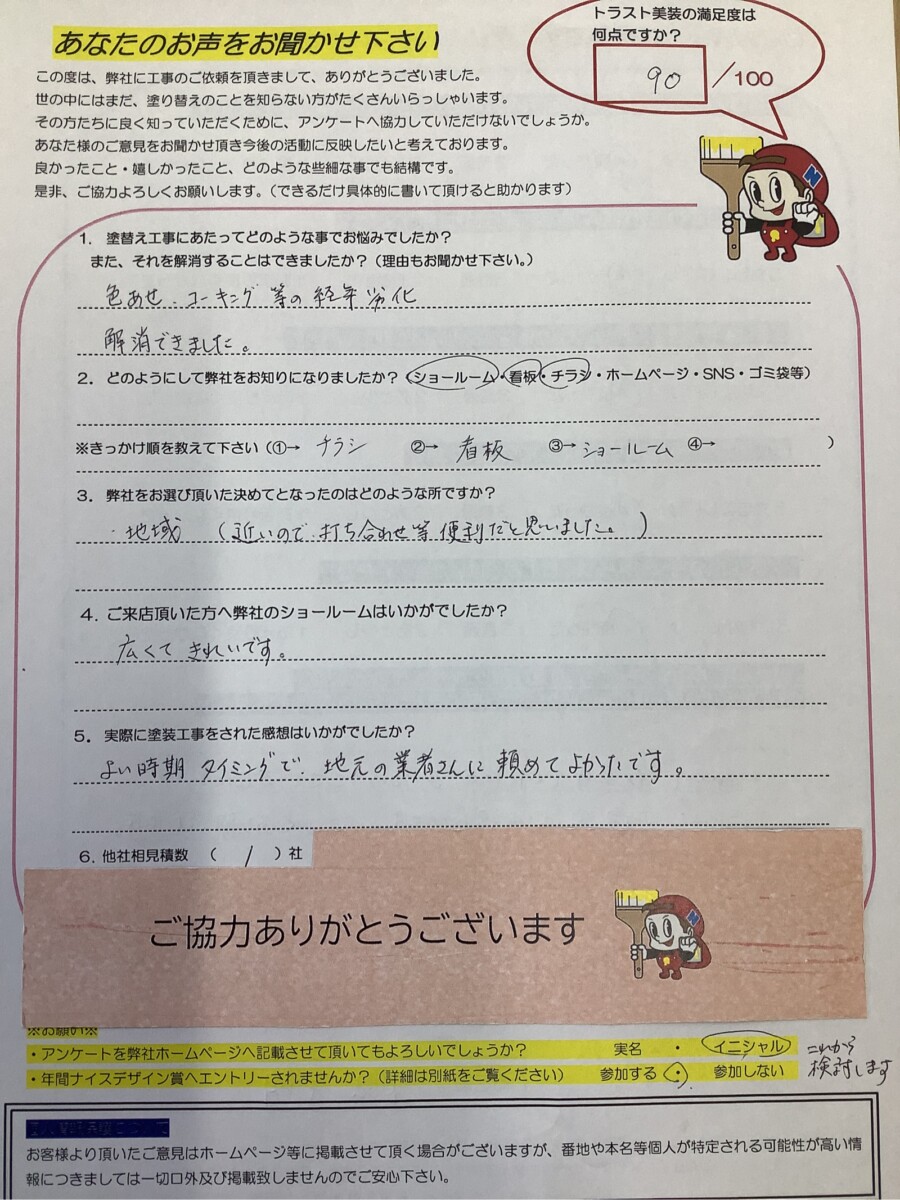 あなたのお声をお聞かせ下さい
トラスト美装の満足度は
何点ですか?
90 /100
この度は、弊社に工事のご依頼を頂きまして、ありがとうございました。
世の中にはまだ、塗り替えのことを知らない方がたくさんいらっしゃいます。
その方たちに良く知っていただくために、アンケートへ協力していただけないでしょうか。
あなた様のご意見をお聞かせ頂き今後の活動に反映したいと考えております。
良かったこと・嬉しかったこと、どのような些細な事でも結構です。
是非、ご協力よろしくお願いします。(できるだけ具体的に書いて頂けると助かります)
N
1. 塗替え工事にあたってどのような事でお悩みでしたか?
また、それを解消することはできましたか?(理由もお聞かせ下さい。)
色あせ、コーキング等の経年劣化
解消できました。
2. どのようにして弊社をお知りになりましたか?(ショールーム・看板・チラシ・ホームページ・SNS・ゴミ袋等)
※きっかけ順を教えて下さい(①→ チラシ ②→ 看板 ③→ ショールーム ④→ )
3. 弊社をお選び頂いた決めてとなったのはどのような所ですか?
・地域 (近いので、打ち合わせ等便利だと思いました。)
4. ご来店頂いた方へ弊社のショールームはいかがでしたか?
広くてきれいです。
5. 実際に塗装工事をされた感想はいかがでしたか?
よい時期タイミングで、地元の業者さんに頼めてよかったです。
6. 他社相見積数 ( 1 )社
ご協力ありがとうございます
N
※お願い※
・アンケートを弊社ホームページへ記載させて頂いてもよろしいでしょうか? 実名 ・ イニシャル
・年間ナイスデザイン賞へエントリーされませんか?(詳細は別紙をご覧ください) 参加する ・ 参加しない
これから
検討します
お客様より頂いたご意見はホームページ等に掲載させて頂く場合がございますが、番地や本名等個人が特定される可能性が高い情
報につきましては一切口外及び掲載致しませんのでご安心下さい。